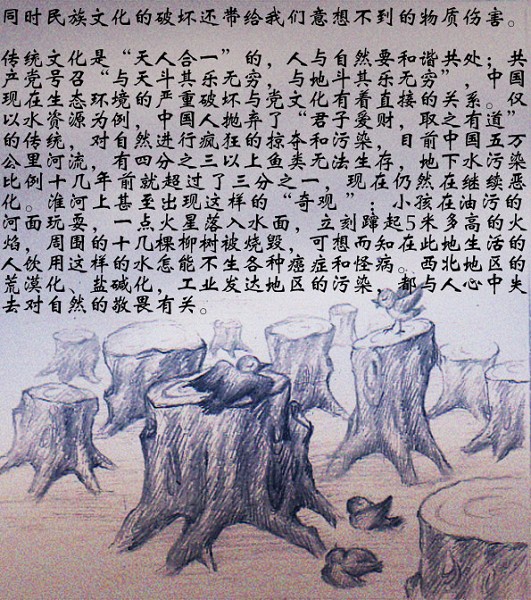 同时民族文化的破坏还带给我们意想不到的物质伤害。
传统文化是“天人合一”的，人与自然要和谐共处；共
产党号召“与天斗其乐无穷，与地斗其乐无穷”，中国
现在生态环境的严重破坏与党文化有着直接的关系。仅
以水资源为例，中国人抛弃了“君子爱财，取之有道”
的传统，对自然进行疯狂的掠夺和污染，目前中国五万
公里河流，有四分之三以上鱼类无法生存，地下水污染
比例十几年前就超过了三分之一，现在仍然在继续恶
化。淮河上甚至出现这样的“奇观”：小孩在油污的
河面玩耍，一点火星落入水面，立刻蹿起5米多高的火
焰，周围的十几棵柳树被烧毁，可想而知在此地生活的
人饮用这样的水怎能不生各种癌症和怪病。西北地区的
荒漠化、盐碱化，工业发达地区的污染，都与人心中失
去对自然的敬畏有关。